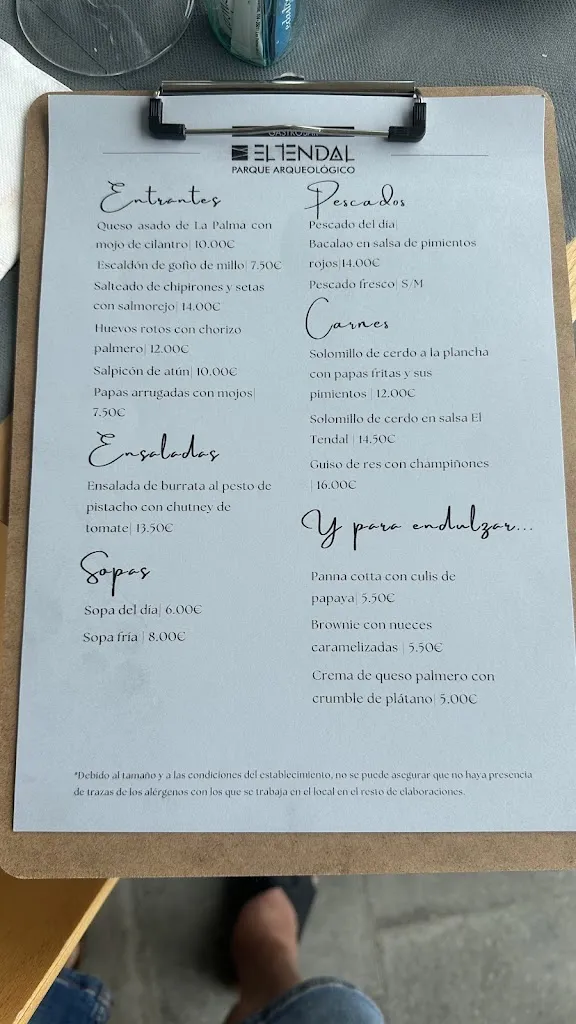 GASTROBAR
EL TENDAL
PARQUE ARQUEOLÓGICO
Entrantes
Queso asado de La Palma con
mojo de cilantro| 10.00€
Escaldón de gofio de millo| 7.50€
Salteado de chipirones y setas
con salmorejo| 14.00€
Huevos rotos con chorizo
palmero| 12.00€
Salpicón de atún| 10.00€
Papas arrugadas con mojos|
7.50€
Ensaladas
Ensalada de burrata al pesto de
pistacho con chutney de
tomate| 13.50€
Sopas
Sopa del día| 6.00€
Sopa fría | 8.00€
Pescados
Pescado del día|
Bacalao en salsa de pimientos
rojos|14.00€
Pescado fresco| S/M
Carnes
Solomillo de cerdo a la plancha
con papas fritas y sus
pimientos | 12.00€
Solomillo de cerdo en salsa El
Tendal | 14.50€
Guiso de res con champiñones
| 16.00€
Y para endulzar...
Panna cotta con culis de
papaya| 5.50€
Brownie con nueces
caramelizadas | 5.50€
Crema de queso palmero con
crumble de plátano| 5.00€
*Debido al tamaño y a las condiciones del establecimiento, no se puede asegurar que no haya presencia
de trazas de los alérgenos con los que se trabaja en el local en el resto de elaboraciones.